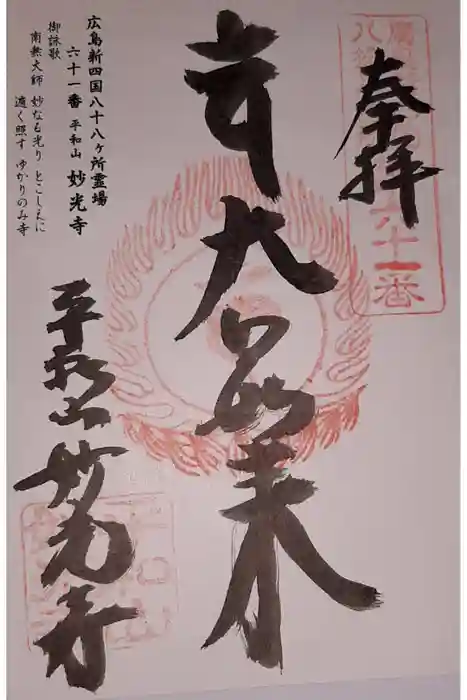 奉拝
六十一番
大日如来
平和山 妙光寺
広島新四国八十八ヶ所霊場
六十一番 平和山 妙光寺
御詠歌
南無大師 妙なる光り とこしえに
遍く照す ゆかりのみ寺